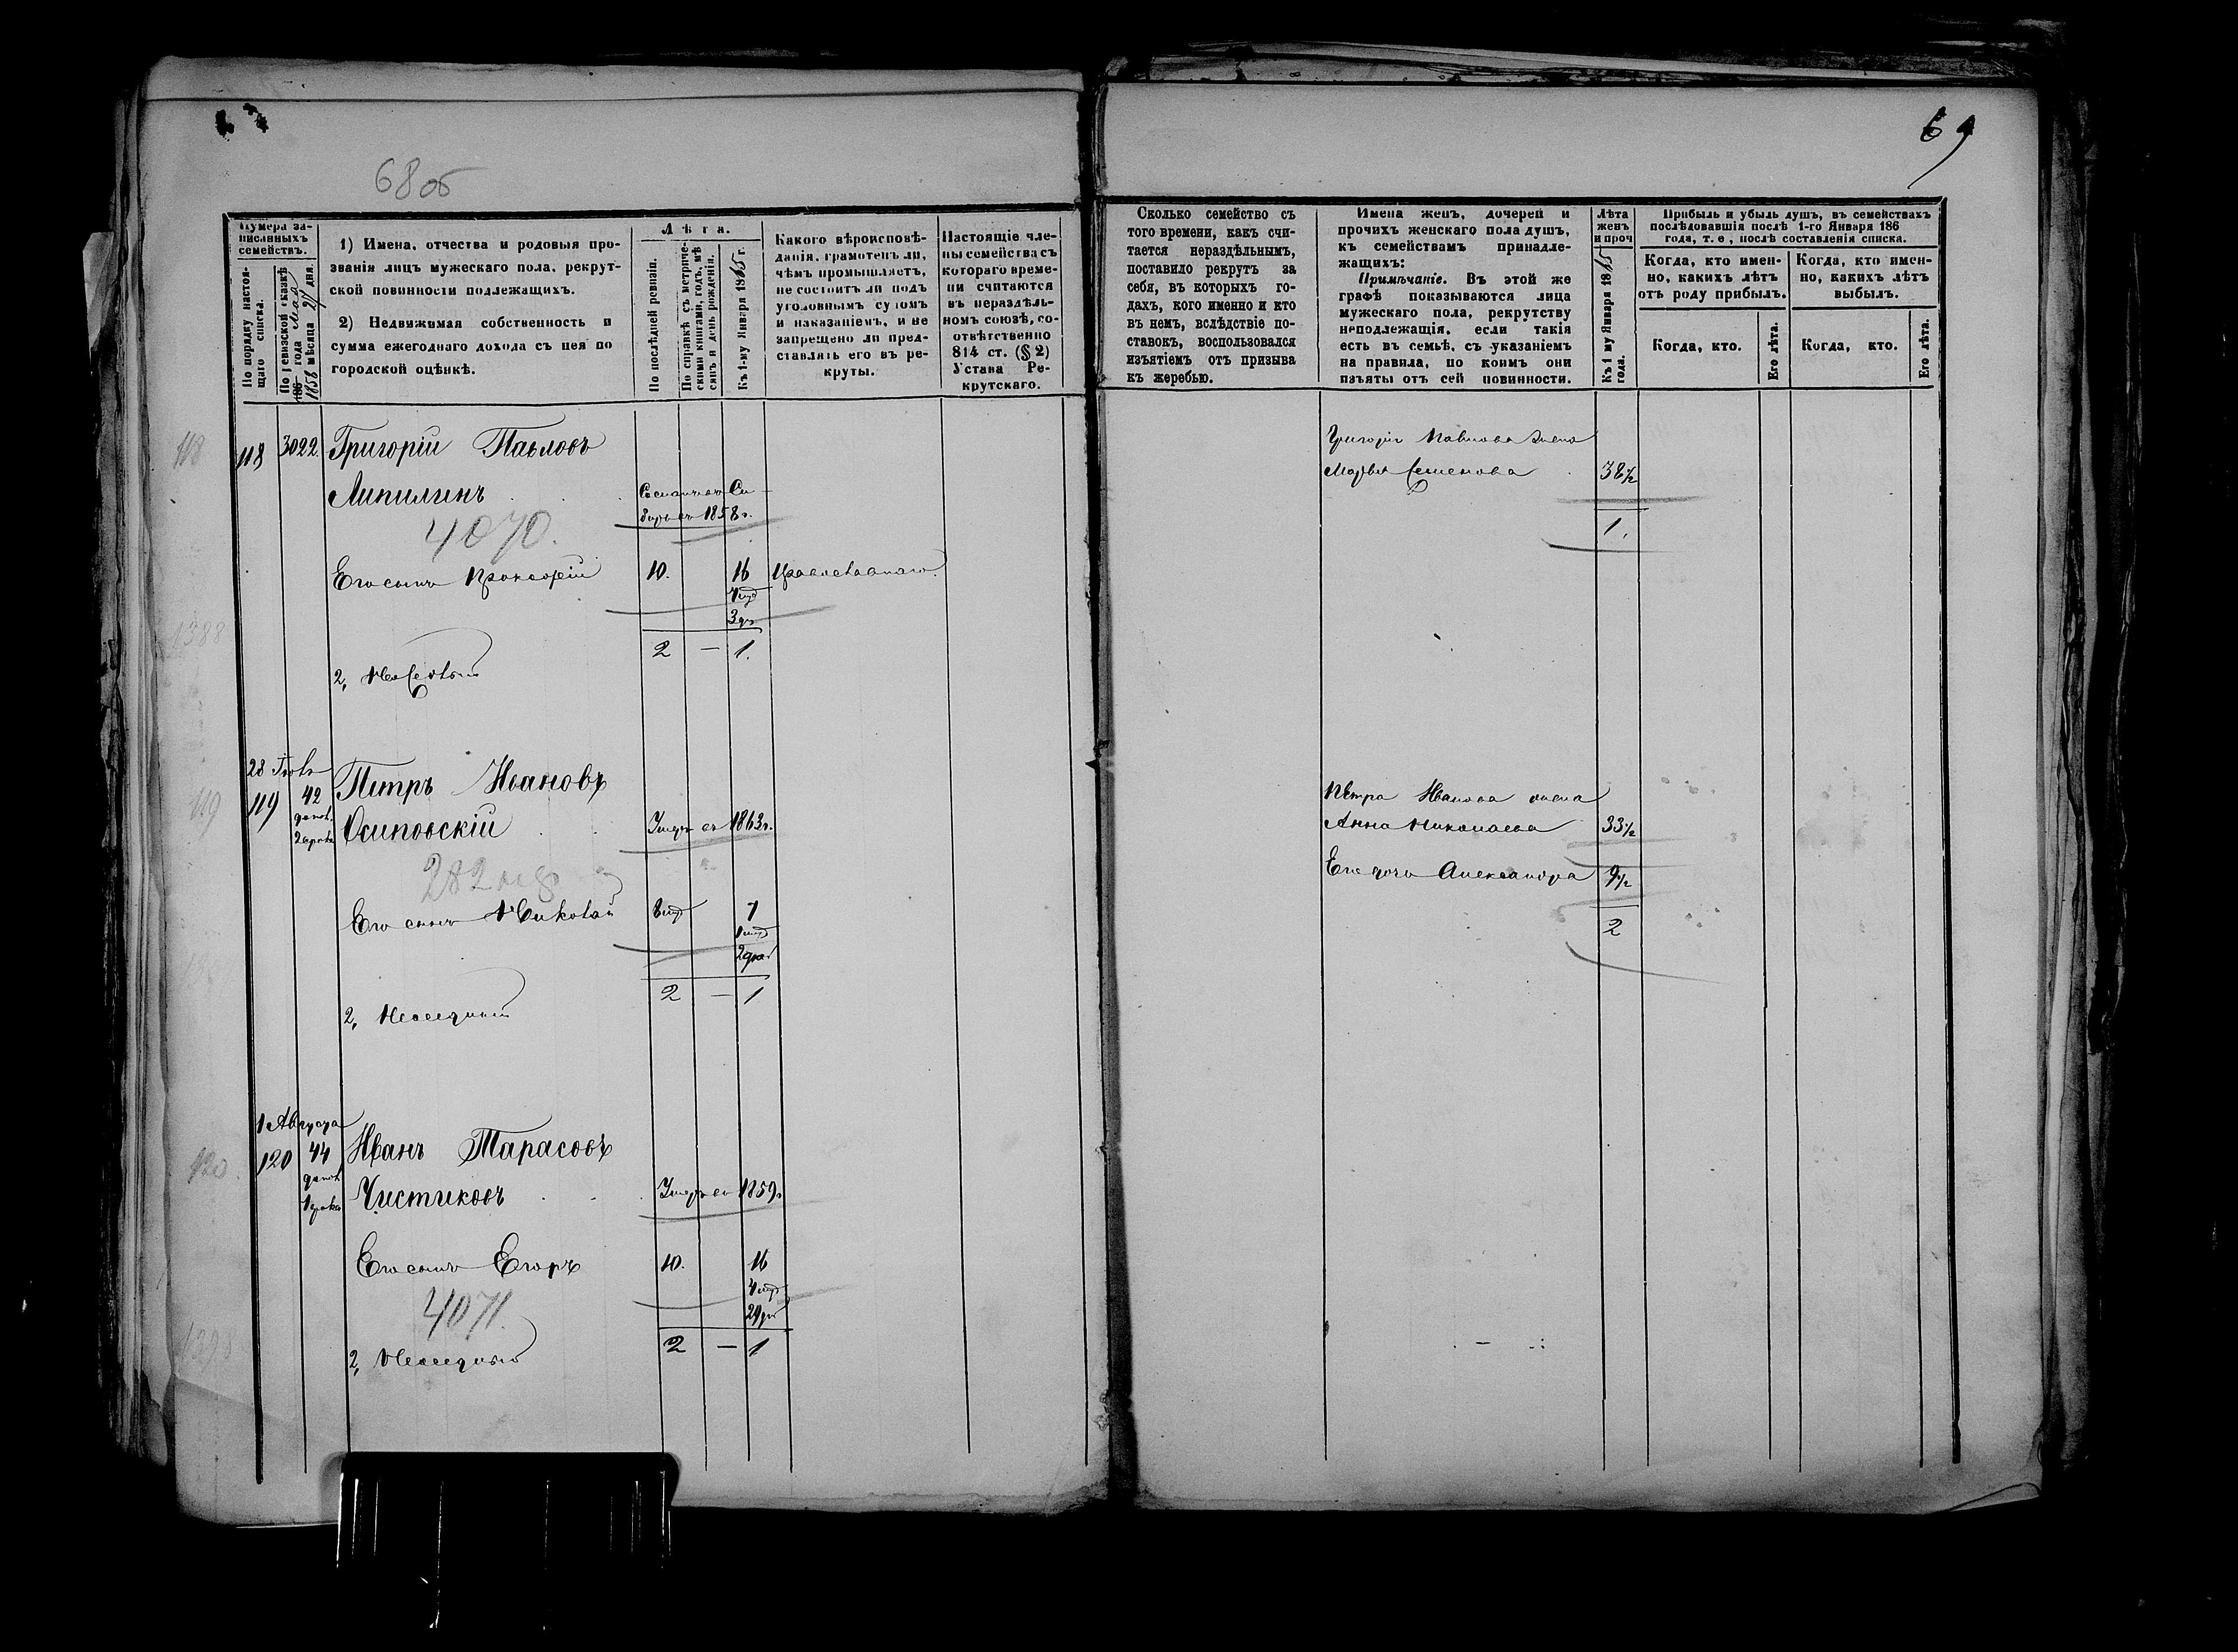 68 об
69
Нумера за-
писанныхъ
семействъ.
По порядку настоя-
щаго списка.
По ревизской сказкѣ
186 года Мая
1858 мѣсяца 27 дня.
1) Имена, отчества и родовыя про-
званія лицъ мужескаго пола, рекрут-
ской повинности подлежащихъ.
2) Недвижимая собственность и
сумма ежегоднаго дохода съ нея по
городской оцѣнкѣ.
Лѣта.
По послѣдней ревизіи.
По справкѣ съ метриче-
скими книгами, годъ, мѣ-
сяцъ и день рожденія.
Къ 1-му Января 1865 г.
Какого вѣроисповѣ-
данія, грамотенъ ли,
чѣмъ промышляетъ,
не состоитъ ли подъ
уголовнымъ судомъ
и наказаніемъ, и не
запрещено ли пред-
ставлять его въ ре-
круты.
Настоящіе чле-
ны семейства съ
котораго време-
ни считаются
въ нераздѣль-
номъ союзѣ, со-
отвѣтственно
814 ст. (§ 2)
Устава Ре-
крутскаго.
Сколько семейство съ
того времени, какъ счи-
тается нераздѣльнымъ,
поставило рекрутъ за
себя, въ которыхъ го-
дахъ, кого именно и кто
въ немъ, вслѣдствіе по-
ставокъ, воспользовался
изъятіемъ отъ призыва
къ жеребью.
Имена женъ, дочерей и
прочихъ женскаго пола душъ,
къ семействамъ принадле-
жащихъ:
Примѣчаніе. Въ этой же
графѣ показываются лица
мужескаго пола, рекрутству
неподлежащія, если такія
есть въ семьѣ, съ указаніемъ
на правила, по коимъ они
изъяты отъ сей повинности.
Лѣта
женъ
и проч
Къ 1 му Января 1865
года.
Прибыль и убыль душъ, въ семействахъ
послѣдовавшія послѣ 1-го Января 186
года, т. е, послѣ составленія списка.
Когда, кто имен-
но, какихъ лѣтъ
отъ роду прибылъ.
Когда, кто имен-
но, какихъ лѣтъ
выбылъ.
Когда, кто.
Его лѣта.
Когда, кто.
Его лѣта.
118 118 3022. Григорій Павловъ
Липилинъ
въ 1858 г.
4070.
Его сынъ Прокофій 10. 16 Православнаго.
3 дн
1388
2 — 1.
2,
Григорія Павлова жена
Марья Семенова 38½
1.
119 119 42 Петръ Ивановъ
Осиповскій Умеръ въ 1863 г.
282
Его сынъ Николай 7
2 дня
2 — 1
2, Неседимый
Петра Иванова жена
Анна Николаева 33½
Его дочь Александра 9½
2
1 Августа
120 120 44 Иванъ Тарасовъ
Чистиковъ Умеръ въ 1859 г
Его сынъ Егоръ 10. 16
4071.
29 дн
2 — 1
2,